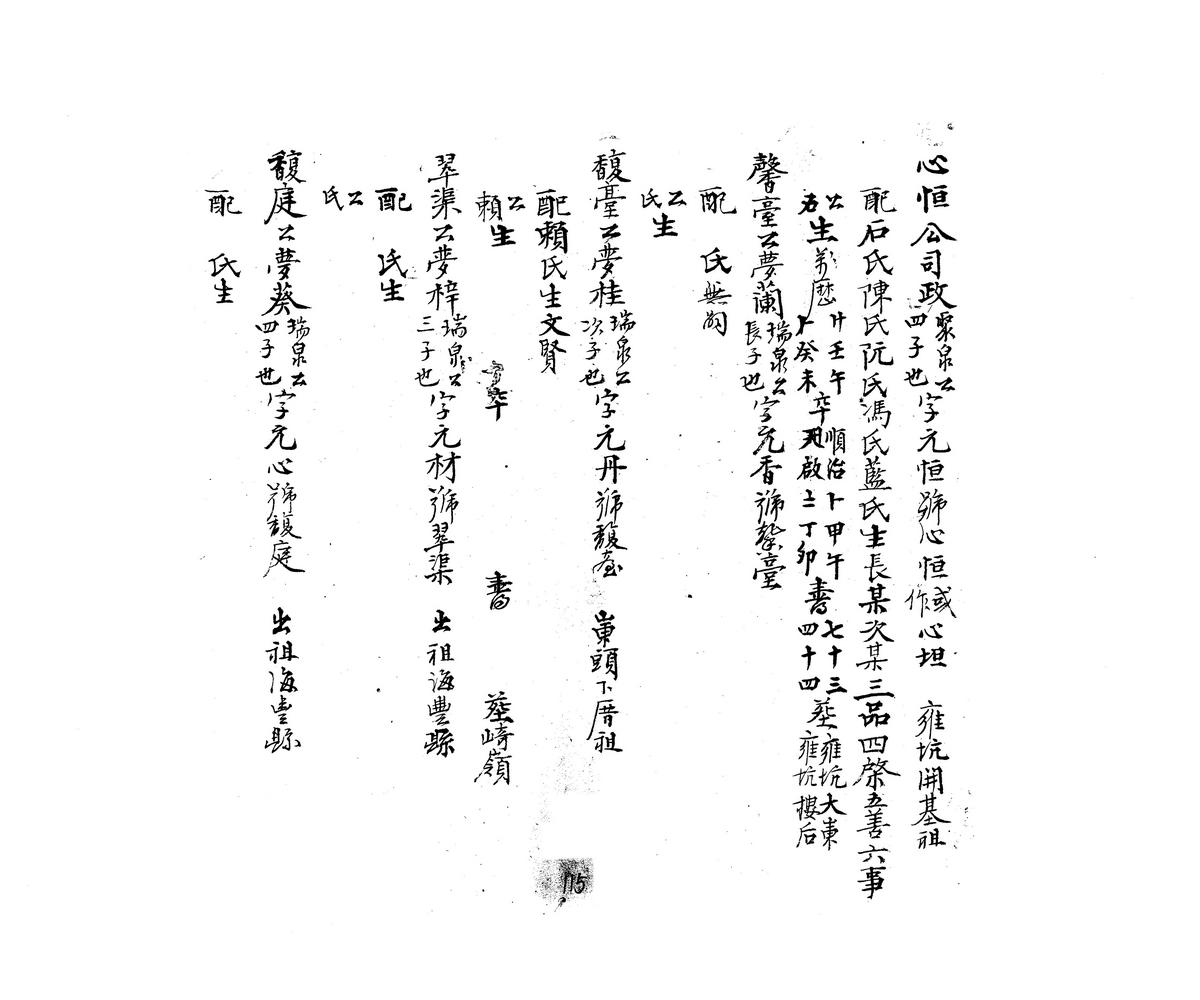 心恒公司政聚泉公四子也字元恒號心恒或作心坦 雍坑開基祖
配石氏陳氏阮氏馮氏藍氏生長某次某三品四棨五善六事
公石生萬曆廿壬午卜癸未卒順治卜甲午天啟二丁卯壽七十三四十四葬雍坑大崬雍坑樓后
馨臺公夢蘭瑞泉公長子也字元香號馨臺
配 氏無嗣
公氏生
馥臺公夢桂瑞泉公次子也字元丹號馥臺 崬頭下厝祖
配賴氏生文賢
公賴生 卒 壽 葬崎嶺
翠渠公夢梓瑞泉公三子也字元材號翠渠 出祖海豐縣
配 氏生
公氏
馥庭公夢葵瑞泉公四子也字元心號馥庭 出祖海豐縣
配 氏生
115